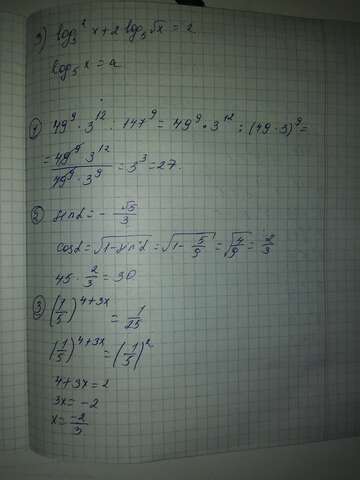 3) log₅² x + 2 log₅ √x = 2
log₅ x = a
① 49⁹ · 3¹² : 147⁹ = 49⁹ · 3¹² : (49 · 3)⁹ =
= (49⁹ · 3¹²)/(49⁹ · 3⁹) = 3³ = 27.
② sin α = - √5/3
cos α = √(1 - sin² α) = √(1 - 5/9) = √(4/9) = 2/3
45 · 2/3 = 30
③ (1/5)^(4+3x) = 1/25
(1/5)^(4+3x) = (1/5)²
4+3x = 2
3x = -2
x = -2/3